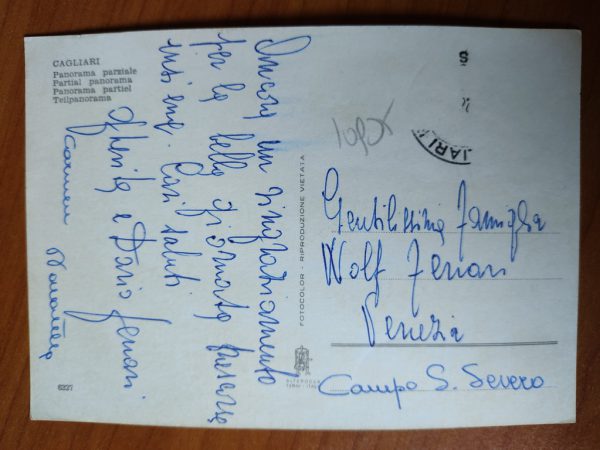 CAGLIARI
Panorama parziale
Partial panorama
Panorama partiel
Teilpanorama
Ancora un ringraziamento
per la bella giornata trascorsa
insieme. Cari saluti
e Dario Ferrari
Carmen
6227
FOTOCOLOR - RIPRODUZIONE VIETATA
ALTEROCCA
TERNI - ITALY
IARI
Gentilissima famiglia
Wolf Ferrari
Venezia
Campo S. Severo